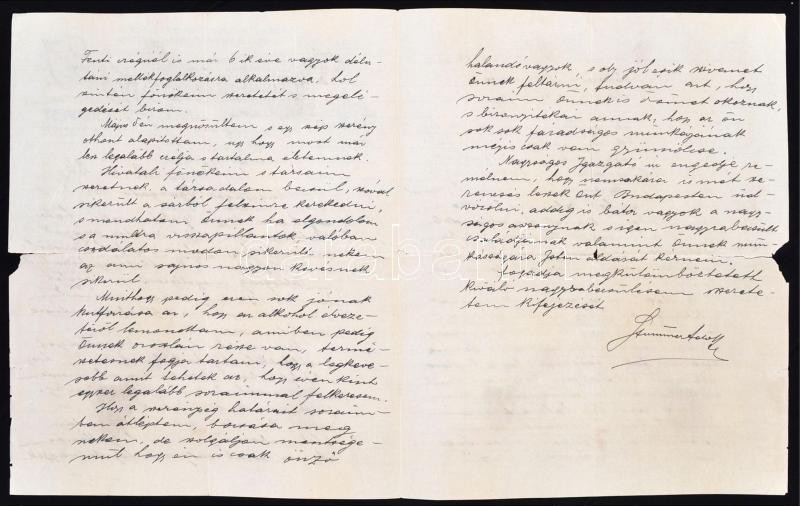 Fenti cégnél is már 6 ik éve vagyok délu-
táni mellékfoglalkozásra alkalmazva, hol
szintén főnökeim szeretetét s megelé-
gedését bírom.
Május 5 én megnősültem s egy szép szerény
otthont alapítottam, úgy hogy most már
van legalább célja s tartalma életemnek.
Hivatali főnökeim s társaim
szeretnek, a társadalom becsül, szóval
sikerült a sárból felszínre kerekedni,
s mondhatom Önnek ha elgondolom
s a multra visszapillantok valóban
csodálatos módon sikerült nekem
az ami sajnos nagyon kevésnek
sikerül.
Minthogy pedig ezen sok jónak
kútforrása az, hogy az alkohol élveze-
téről lemondottam, amiben pedig
Önnek oroszlán része van, termé-
szetesnek fogja tartani, hogy a legkeve-
sebb amit tehetek az, hogy évenként
egyszer legalább soraimmal felkeresem.
Hogy a szerénység határait soraim-
ban átléptem, bocsássa meg
nekem, de szolgáljon mentsége-
mül hogy én is csak önző
halandó vagyok, s oly jól esik szívemet
Önnek feltárni, tudván azt, hogy
soraim Önnek is örömet okoznak,
s bizonyítékai annak, hogy az ön
sok sok fáradságos munkájának
mégis csak van gyümölcse.
Nagyságos Igazgató úr engedje re-
mélnem, hogy nemsokára ismét sze-
rencsés leszek Önt Budapesten üd-
vözölni, addig is bátor vagyok a nagy-
ságos asszonynak s igen nagyrabecsült
családjának valamint Önnek mun-
kásságára Isten áldását kérnem.
Fogadja megkülönböztetett
kiváló nagyrabecsülésem s szerete-
tem kifejezését
Stummer Adolf